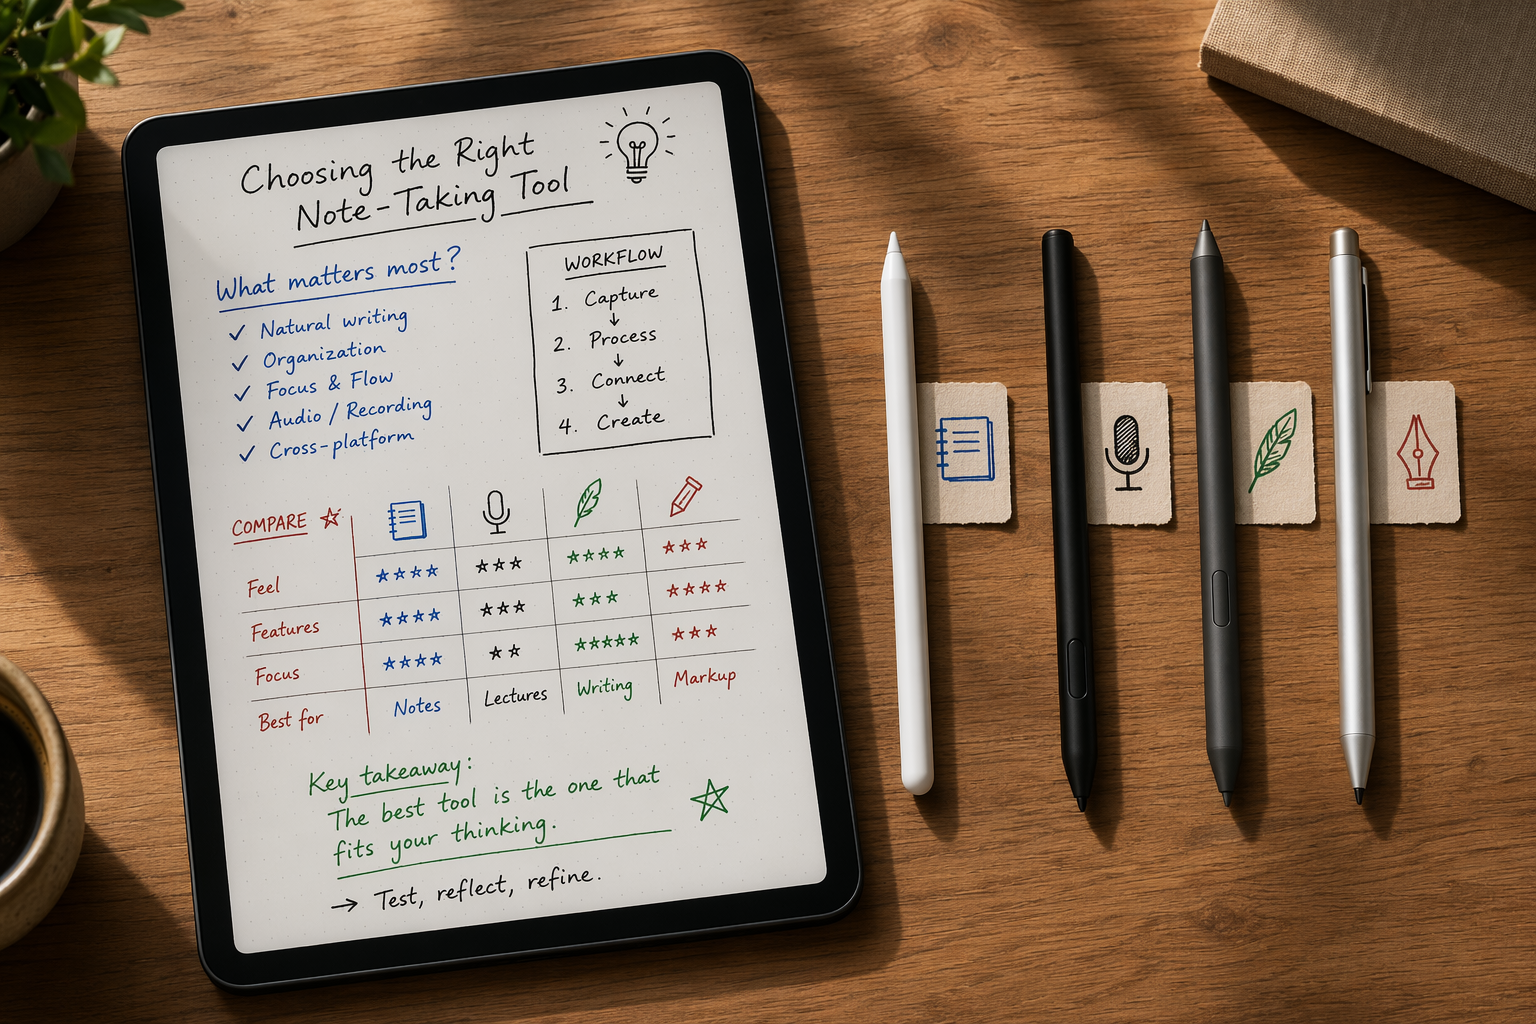 Choosing the Right
Note-Taking Tool
What matters most?
✓ Natural writing
✓ Organization
✓ Focus & Flow
✓ Audio / Recording
✓ Cross-platform
WORKFLOW
1. Capture
↓
2. Process
↓
3. Connect
↓
4. Create
COMPARE ☆
Feel ☆☆☆☆ ☆☆☆ ☆☆☆☆ ☆☆☆
Features ☆☆☆☆ ☆☆☆ ☆☆☆ ☆☆☆☆
Focus ☆☆☆☆ ☆☆ ☆☆☆☆☆ ☆☆☆
Best for Notes Lectures Writing Markup
Key takeaway:
The best tool is the one that
fits your thinking.
→ Test, reflect, refine.